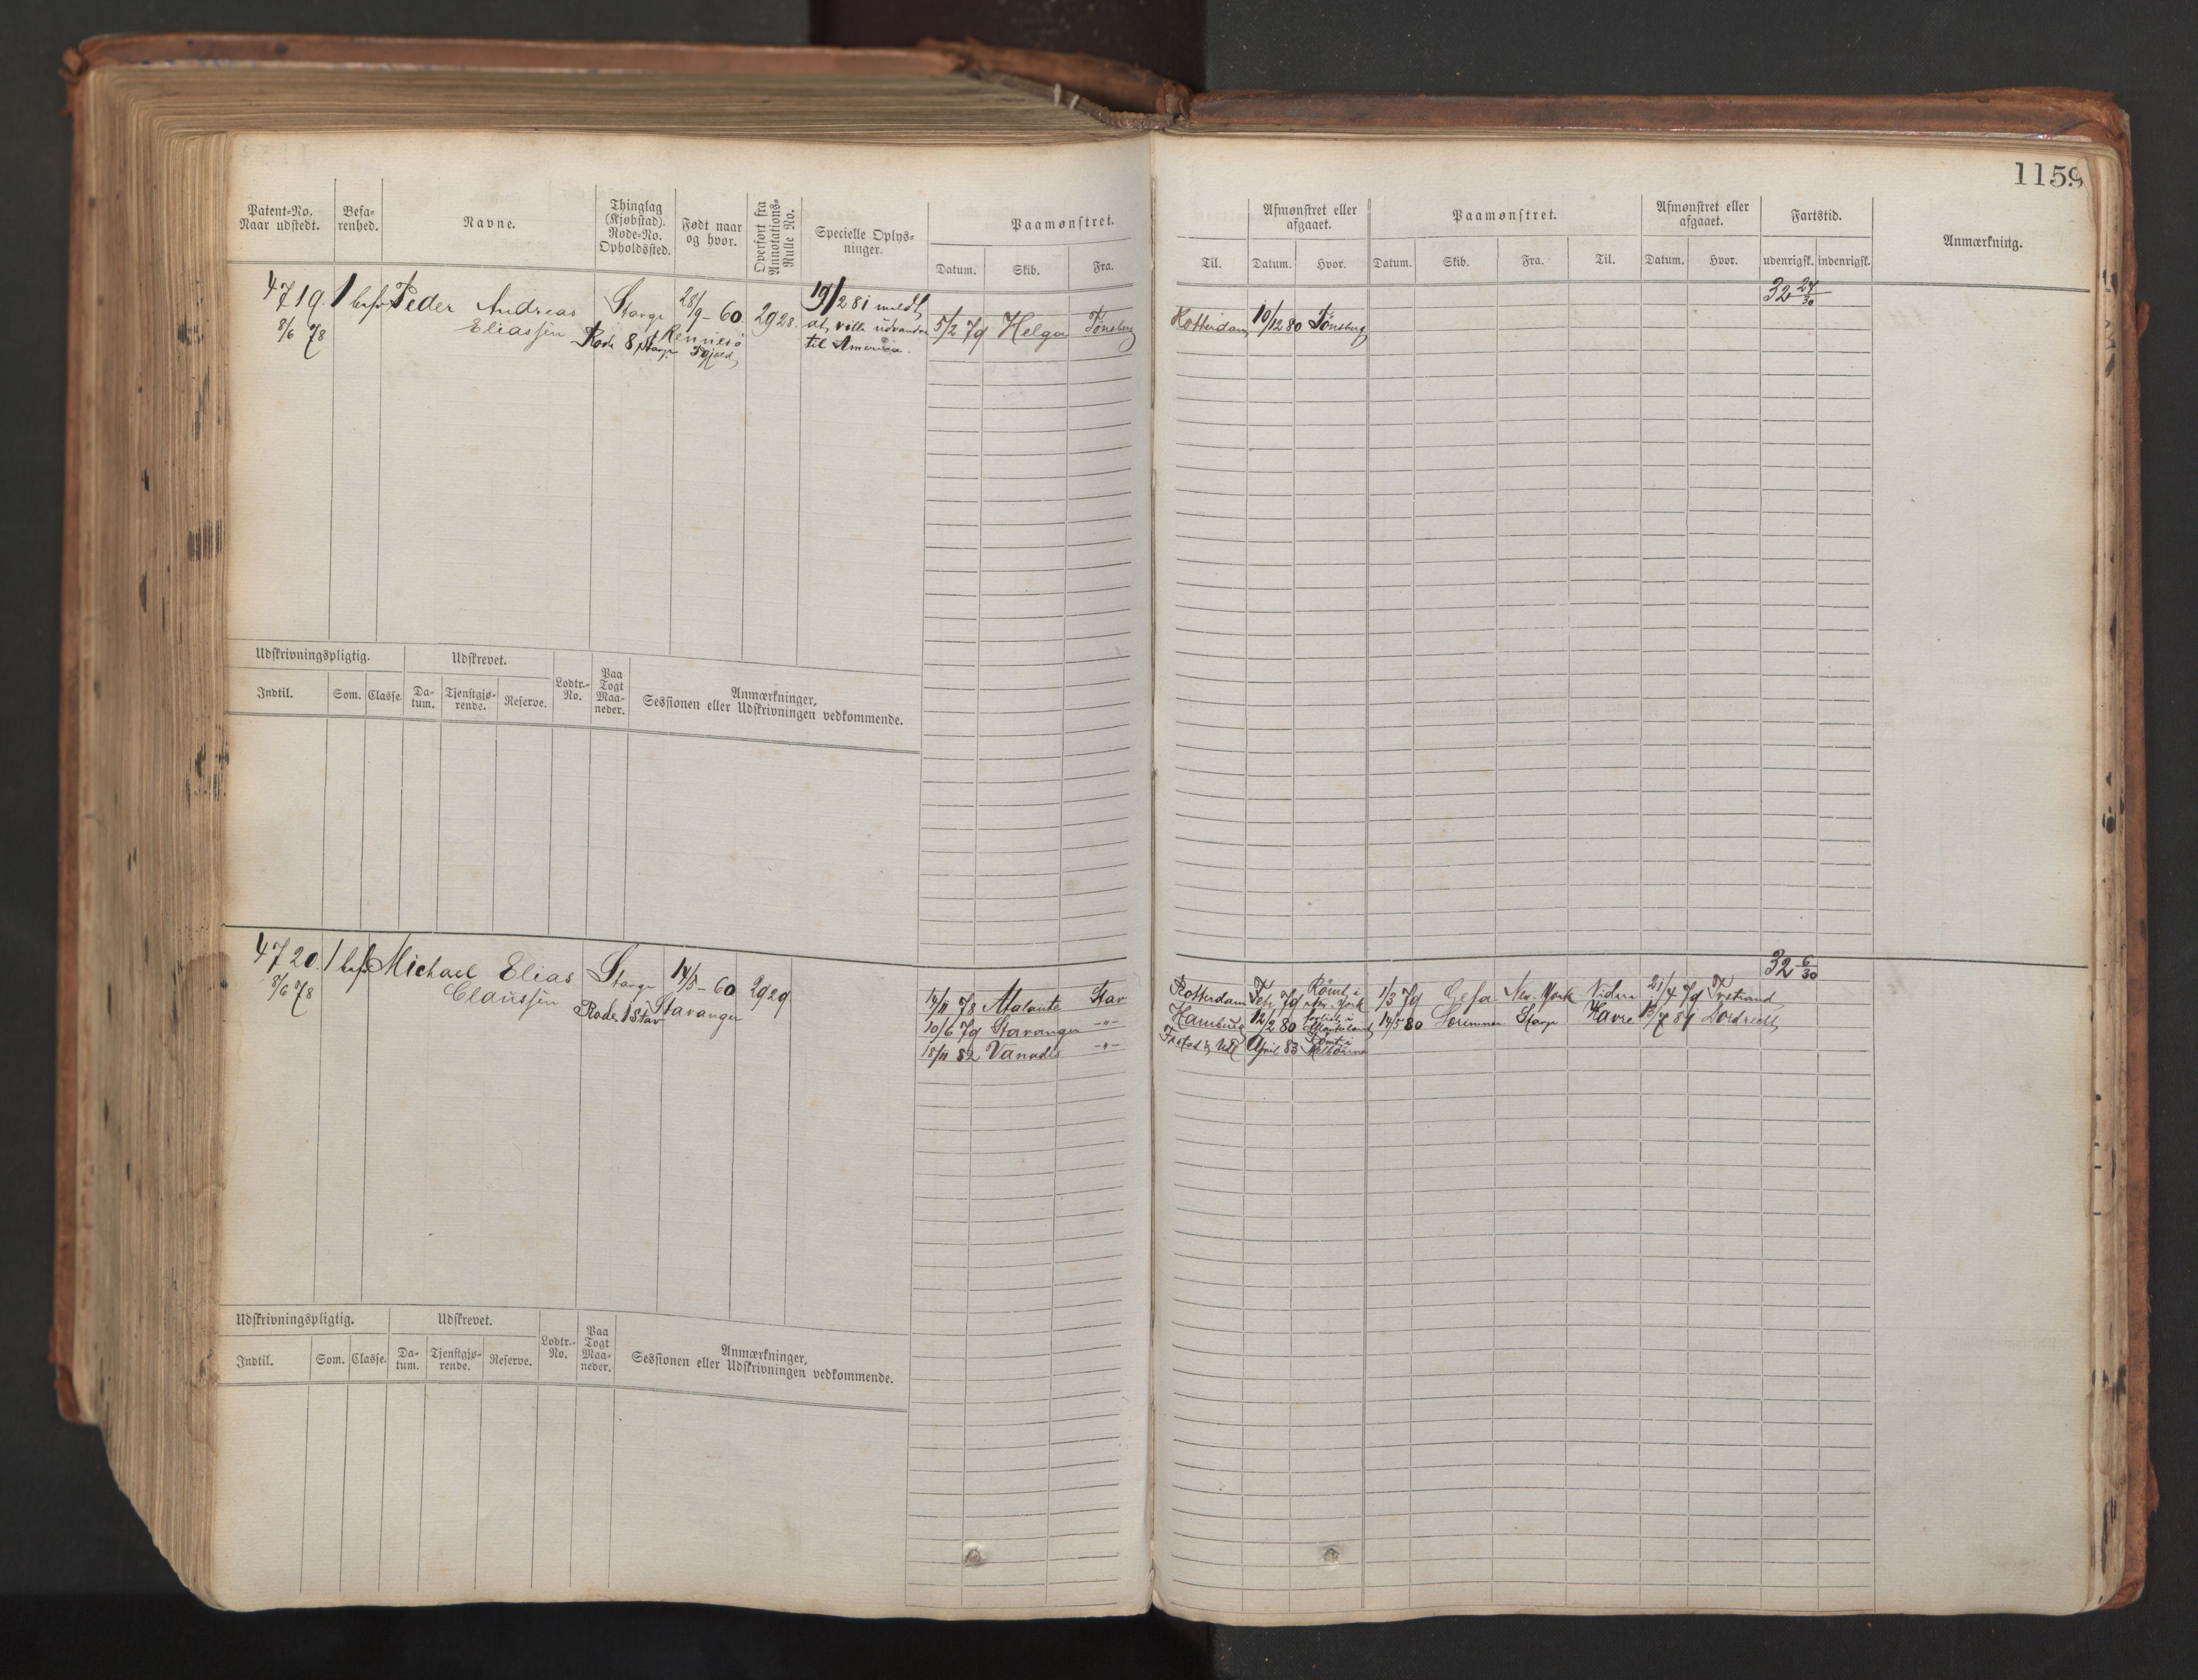 1159
Patent-No. Naar udstedt.
Befa-renhed.
Navne.
Thinglag (Kjøbstad). Rode-No. Opholdssted.
Født naar og hvor.
Overført fra Annotations-Rulle No.
Specielle Oplys-ninger.
Paamønstret.
Datum. Skib. Fra.
Til.
Afmønstret eller afgaaet.
Datum. Hvor.
Paamønstret.
Datum. Skib. Fra. Til.
Afmønstret eller afgaaet.
Datum. Hvor.
Fartstid.
udenrigsk. indenrigsk.
Anmærkning.
4719. 1 bef Peder Andreas Stavgr 28/9-60. 2928. 19/2 81 meldt
8/6 78 Eliassen Rode 8 Stavgr Rennesø at ville udvandre
til Amerika.
5/2 79 Helga Tönsberg Rotterdam 10/12 80 Tönsberg
32 24/30
Udskrivningspligtig. Udskrevet. Lodtr.-No. Paa Togt Maa-neder. Anmærkninger, Sessionen eller Udskrivningen vedkommende.
Indtil. Som. Classe. Da-tum. Tjenstgjø-rende. Reserve.
4720. 1 bef Michael Elias Stavgr 14/5-60 2929.
8/6 78 Claussen Rode 1 Stav Stavanger
32 6/30
14/11 78 Atalanta Stav Rotterdam Feb 79 Römt i New-York 1/3 79 Gefa New-York 21/4 79
10/6 79 Stavanger -"- Hamburg 12/2 80 forlist i 14/5 80 Stavgr Havre 13/7 81 Dordrecht
18/11 82 Vanadis -"- Frstad & Udl April 83 Römt i Melbourne
Udskrivningspligtig. Udskrevet. Lodtr.-No. Paa Togt Maa-neder. Anmærkninger, Sessionen eller Udskrivningen vedkommende.
Indtil. Som. Classe. Da-tum. Tjenstgjø-rende. Reserve.